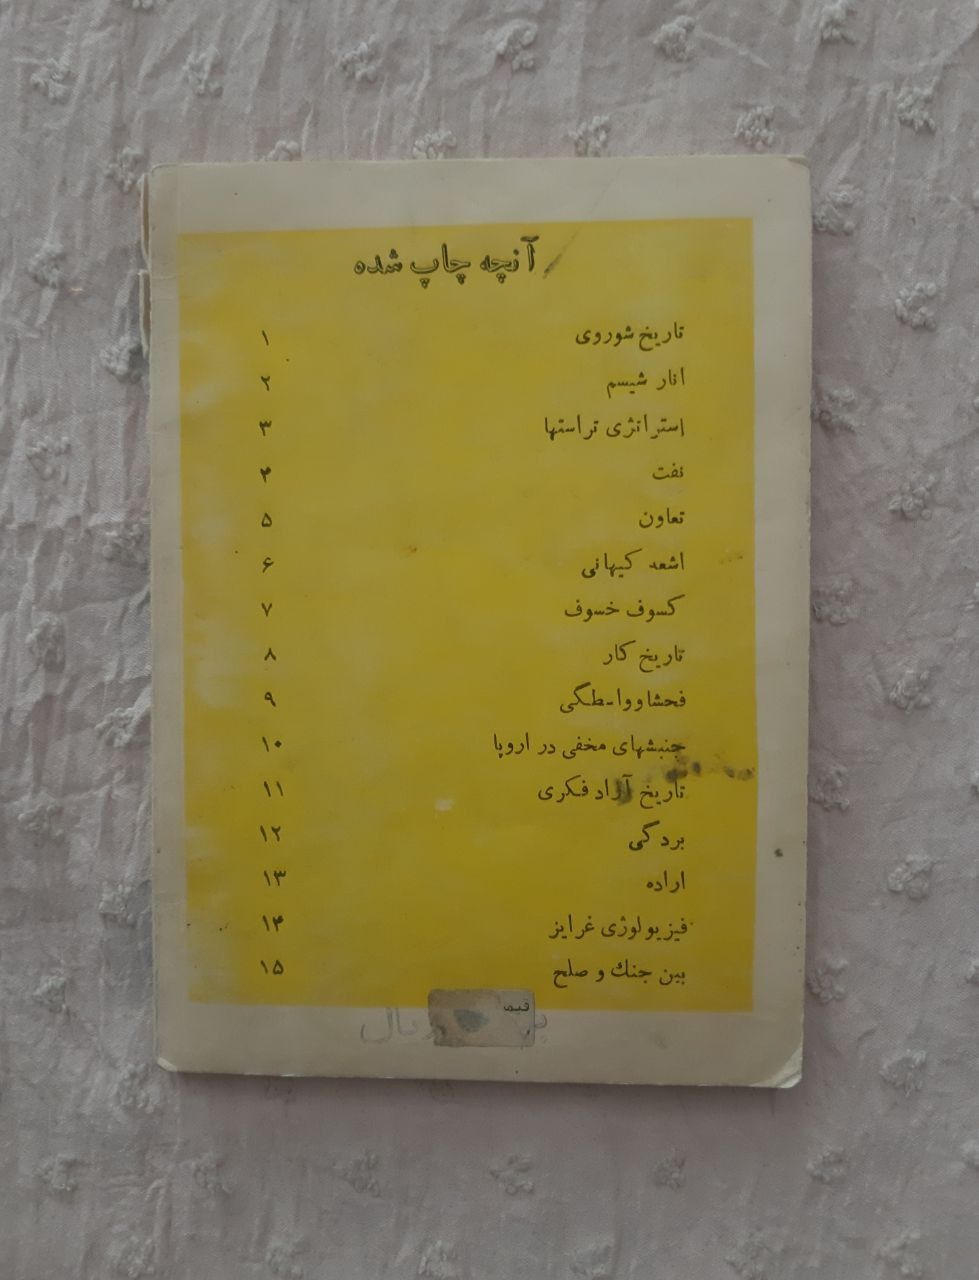 آنچه چاپ شده
تاریخ شوروی ۱
انارشیسم ۲
استراتژی تراستها ۳
نفت ۴
تعاون ۵
اشعه کیهانی ۶
کسوف خسوف ۷
تاریخ کار ۸
فحشاوواسطگی ۹
جنبشهای مخفی در اروپا ۱۰
تاریخ آزاد فکری ۱۱
بردگی ۱۲
اراده ۱۳
فیزیولوژی غرایز ۱۴
بین جنك و صلح ۱۵
ریال